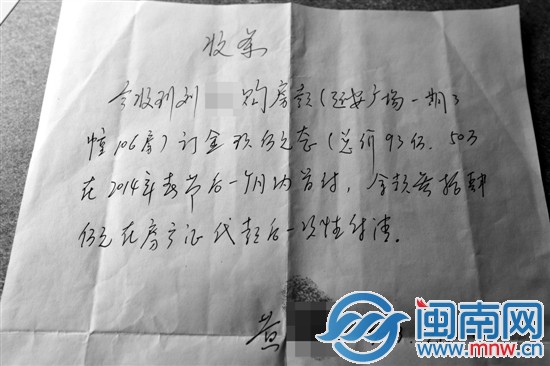 收条
今收到刘 购房款(延安广场一期3
幢106房)订金玖仟元整(总价93万.50万
在2014年春节后一个月内首付,余款叁拾肆
万元在房产证代款后一次性付清。
黄
闽南网
www.mnw.cn